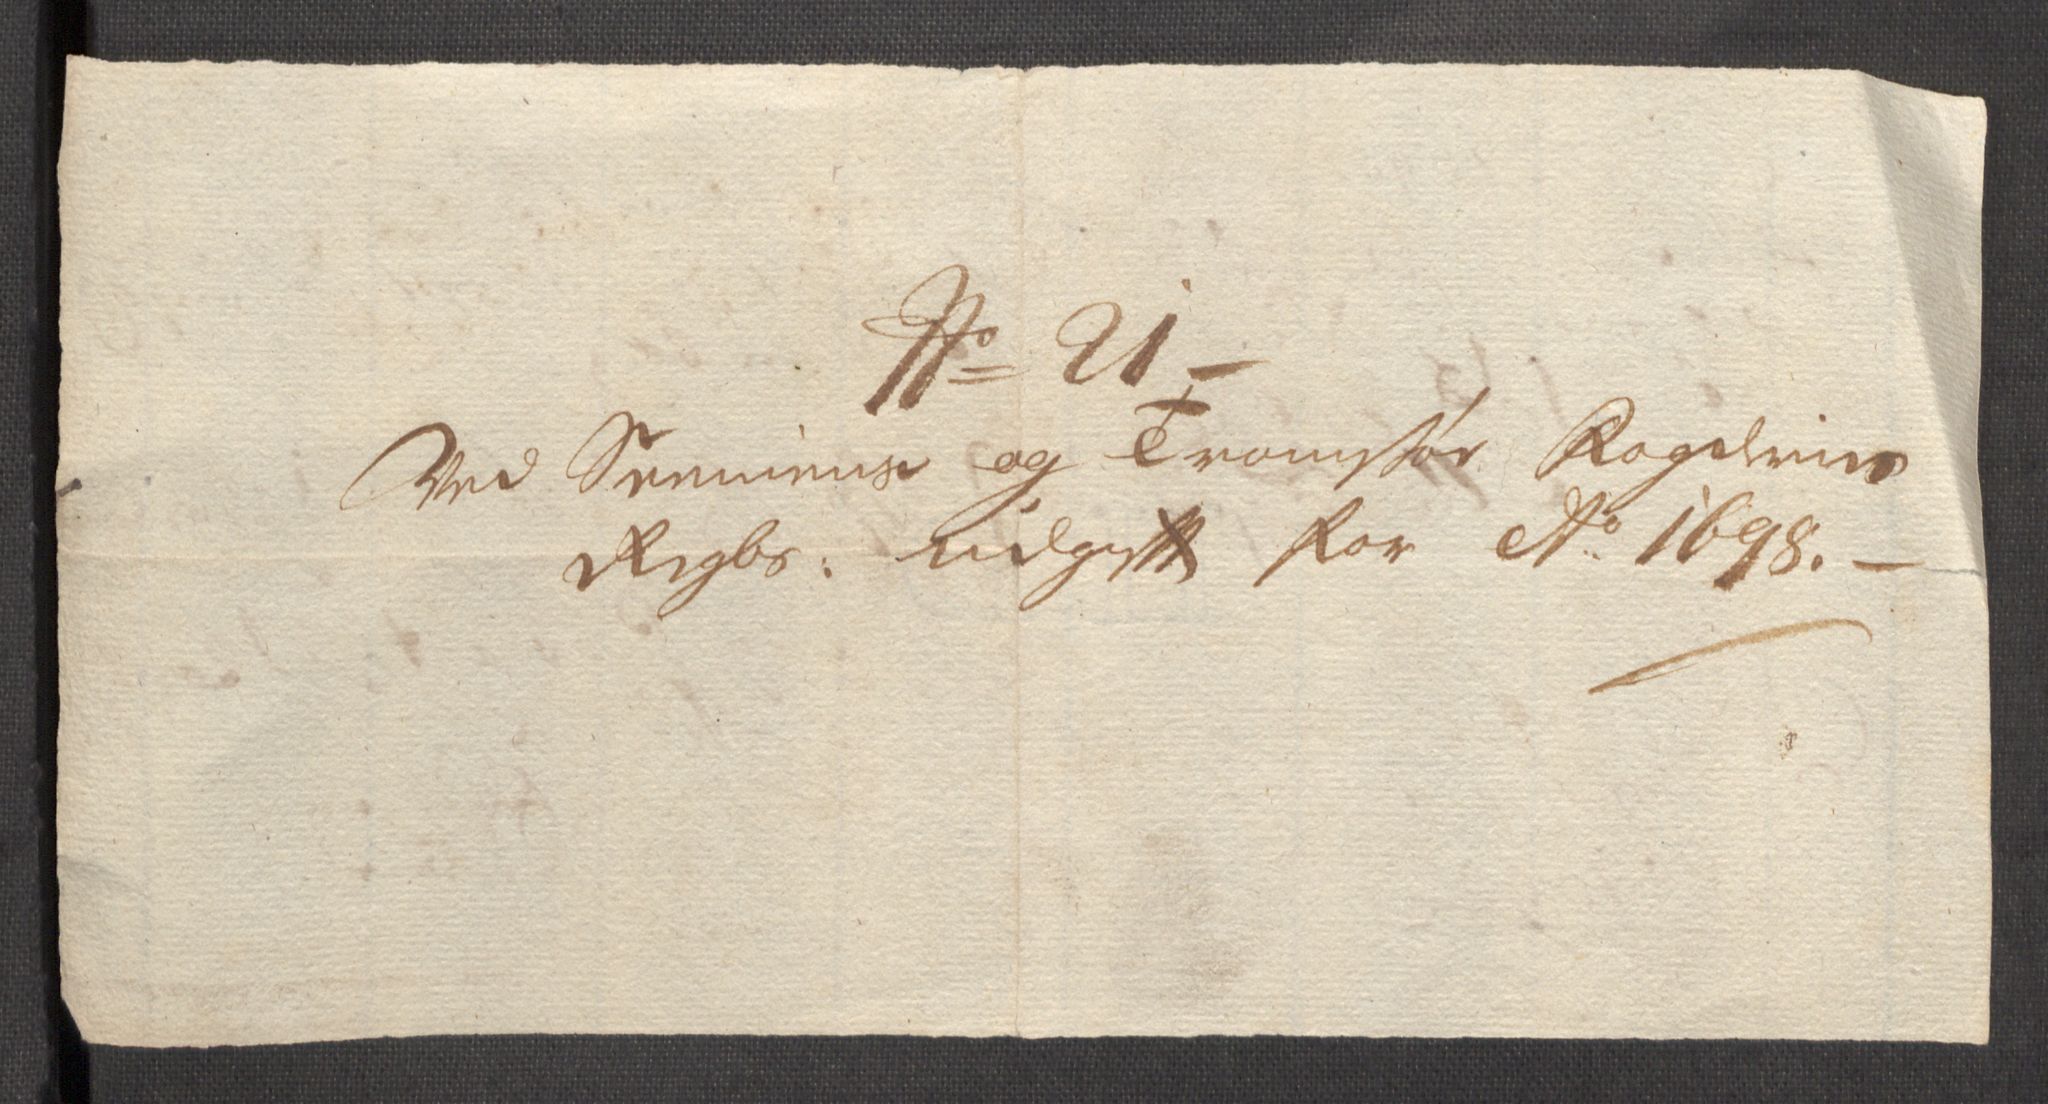 No 21 –
Ved Senniens og Tromsøe Fogderies
Regbs: udgifft for Ao 1698. –